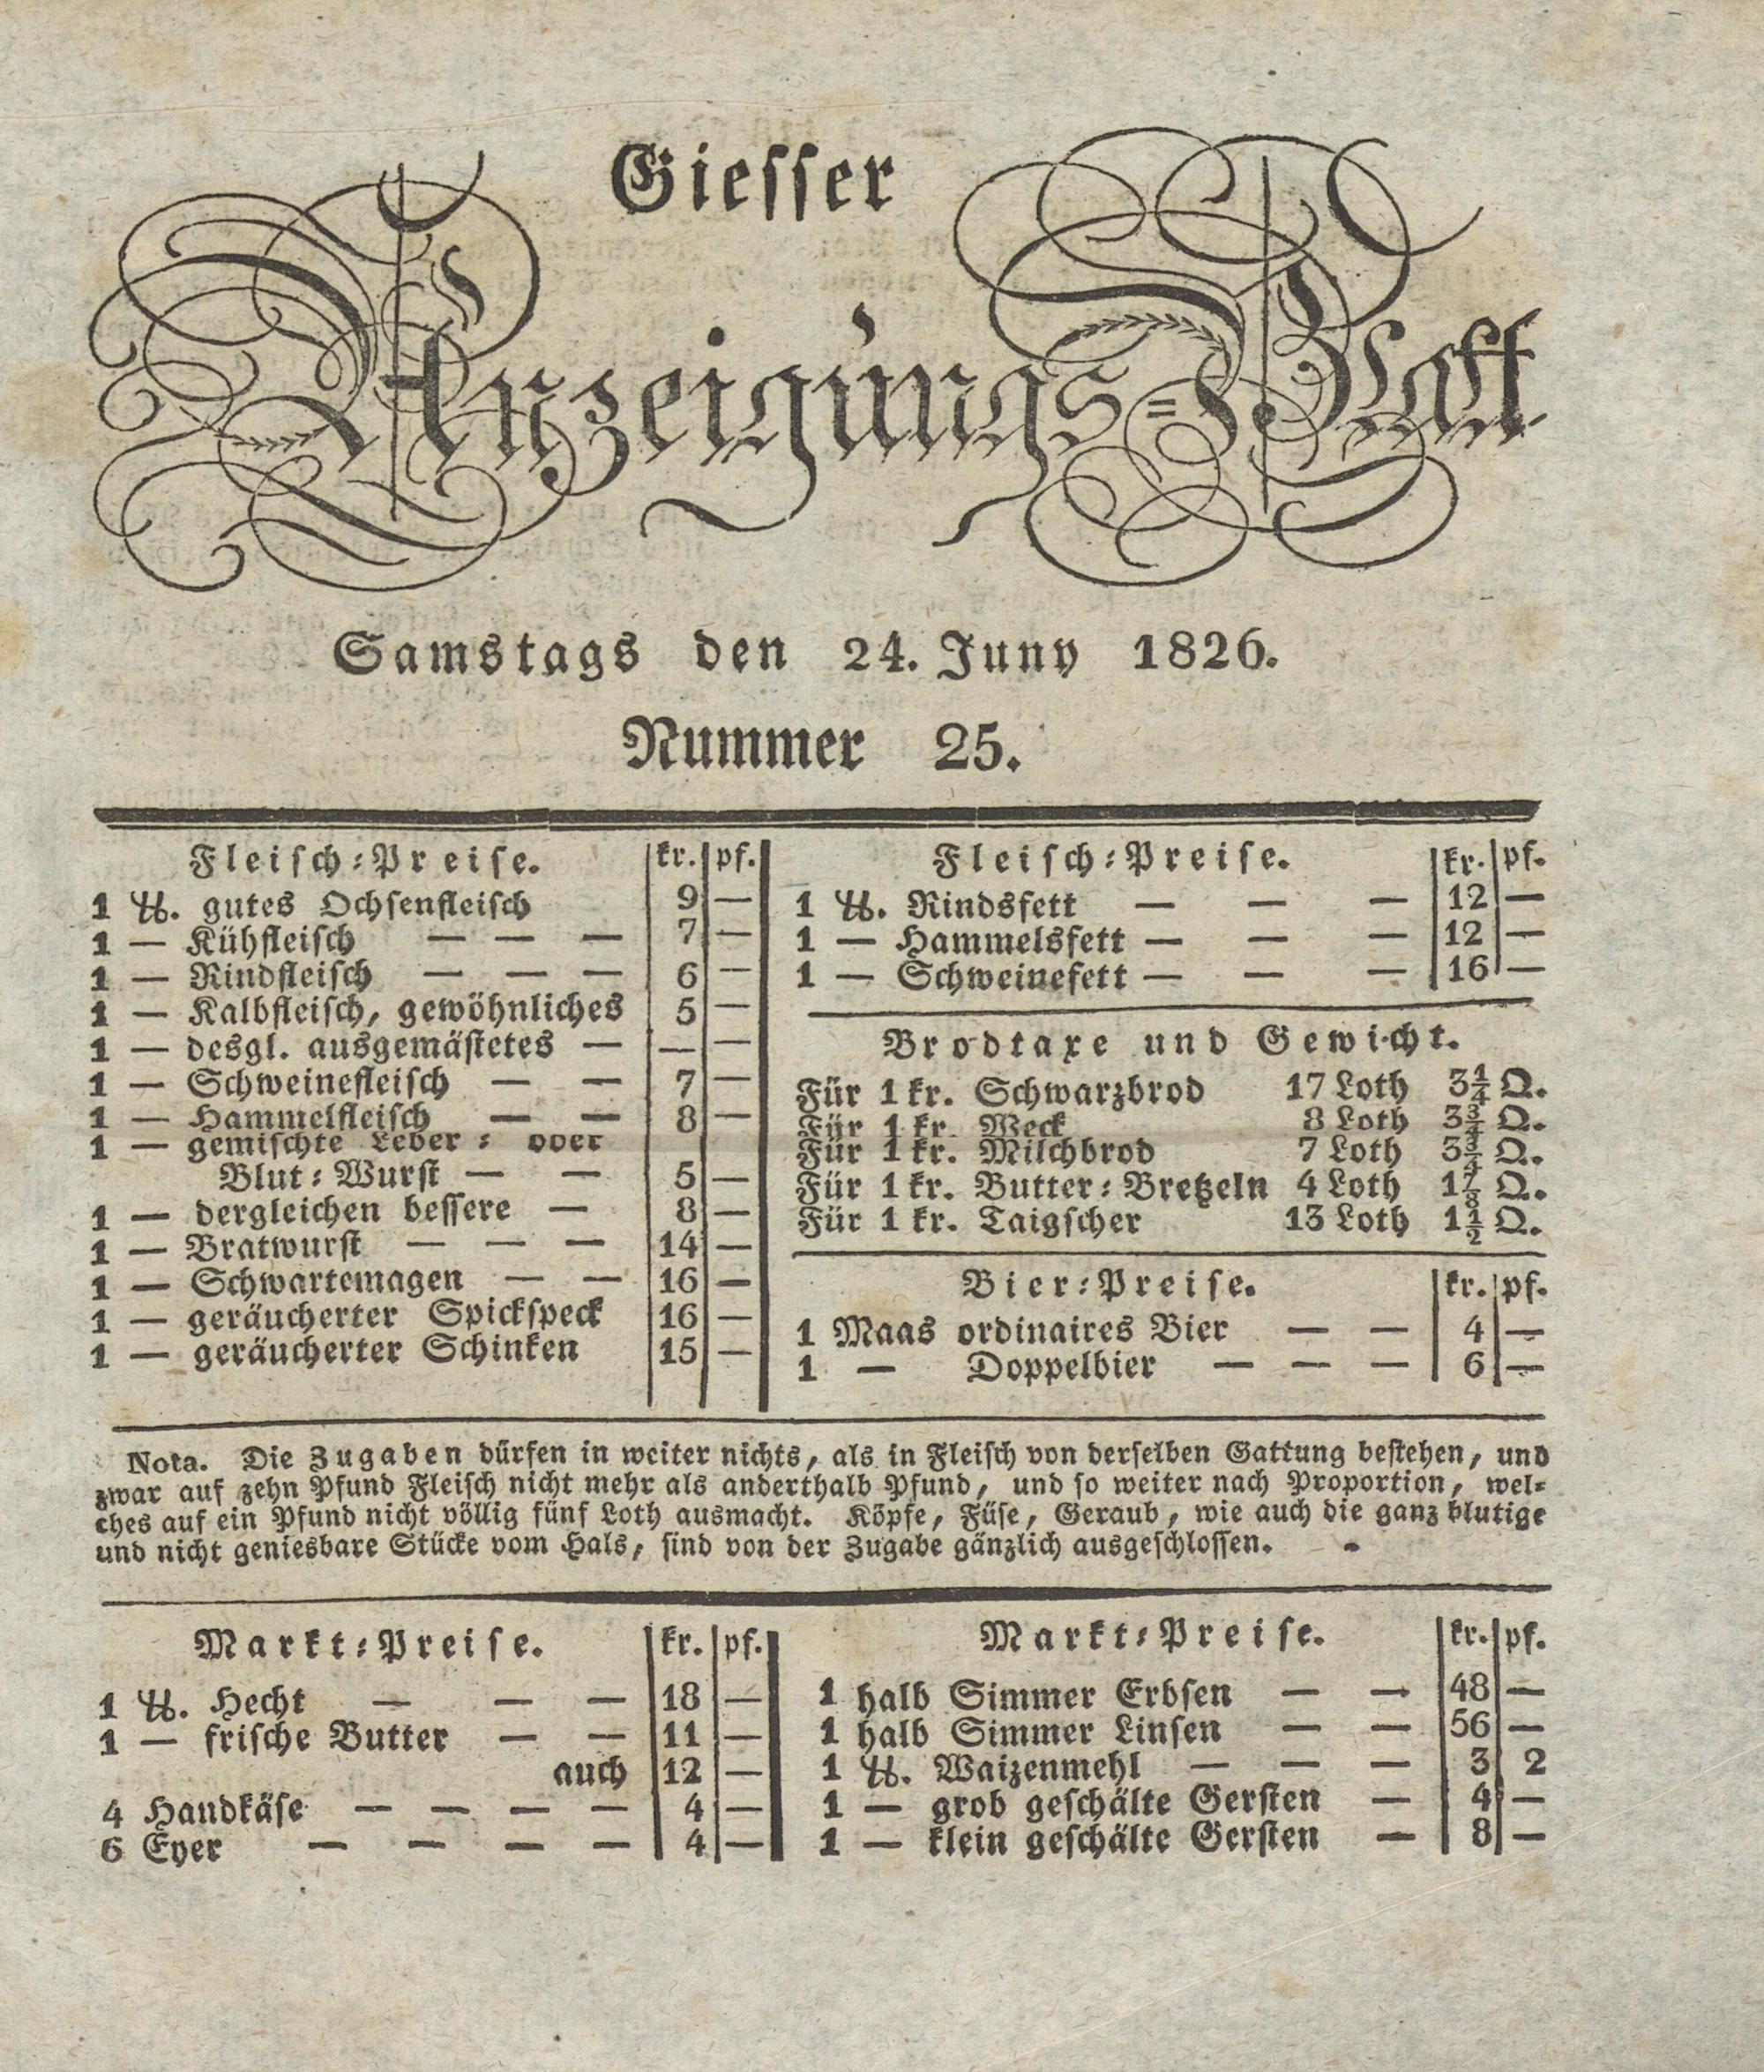 Giesser
Anzeigungs=Blatt
Samstags den 24. Juny 1826.
Nummer 25.
Fleisch=Preise. kr. pf.
1 ℔. gutes Ochsenfleisch 9 —
1 — Kühfleisch — — — 7 —
1 — Rindfleisch — — — 6 —
1 — Kalbfleisch, gewöhnliches 5 —
1 — desgl. ausgemästetes — — —
1 — Schweinefleisch — — 7 —
1 — Hammelfleisch — — 8 —
1 — gemischte Leber= oder
Blut=Wurst — — 5 —
1 — dergleichen bessere — 8 —
1 — Bratwurst — — — 14 —
1 — Schwartemagen — — 16 —
1 — geräucherter Spickspeck 16 —
1 — geräucherter Schinken 15 —
Fleisch=Preise. kr. pf.
1 ℔. Rindsfett — — — 12 —
1 — Hammelsfett — — — 12 —
1 — Schweinefett — — — 16 —
Brodtaxe und Gewicht.
Für 1 kr. Schwarzbrod 17 Loth 3¼ Q.
Für 1 kr. Weck 8 Loth 3¾ Q.
Für 1 kr. Milchbrod 7 Loth 3¾ Q.
Für 1 kr. Butter=Bretzeln 4 Loth 1⅞ Q.
Für 1 kr. Taigscher 13 Loth 1½ Q.
Bier=Preise. kr. pf.
1 Maas ordinaires Bier — — 4 —
1 — Doppelbier — — — 6 —
Nota. Die Zugaben dürfen in weiter nichts, als in Fleisch von derselben Gattung bestehen, und
zwar auf zehn Pfund Fleisch nicht mehr als anderthalb Pfund, und so weiter nach Proportion, wel=
ches auf ein Pfund nicht völlig fünf Loth ausmacht. Köpfe, Füse, Geraub, wie auch die ganz blutige
und nicht geniesbare Stücke vom Hals, sind von der Zugabe gänzlich ausgeschlossen.
Markt=Preise. kr. pf.
1 ℔. Hecht — — — 18 —
1 — frische Butter — — 11 —
auch 12 —
4 Handkäse — — — — 4 —
6 Eyer — — — — 4 —
Markt=Preise. kr. pf.
1 halb Simmer Erbsen — — 48 —
1 halb Simmer Linsen — — 56 —
1 ℔. Waizenmehl — — — 3 2
1 — grob geschälte Gersten — 4 —
1 — klein geschälte Gersten — 8 —